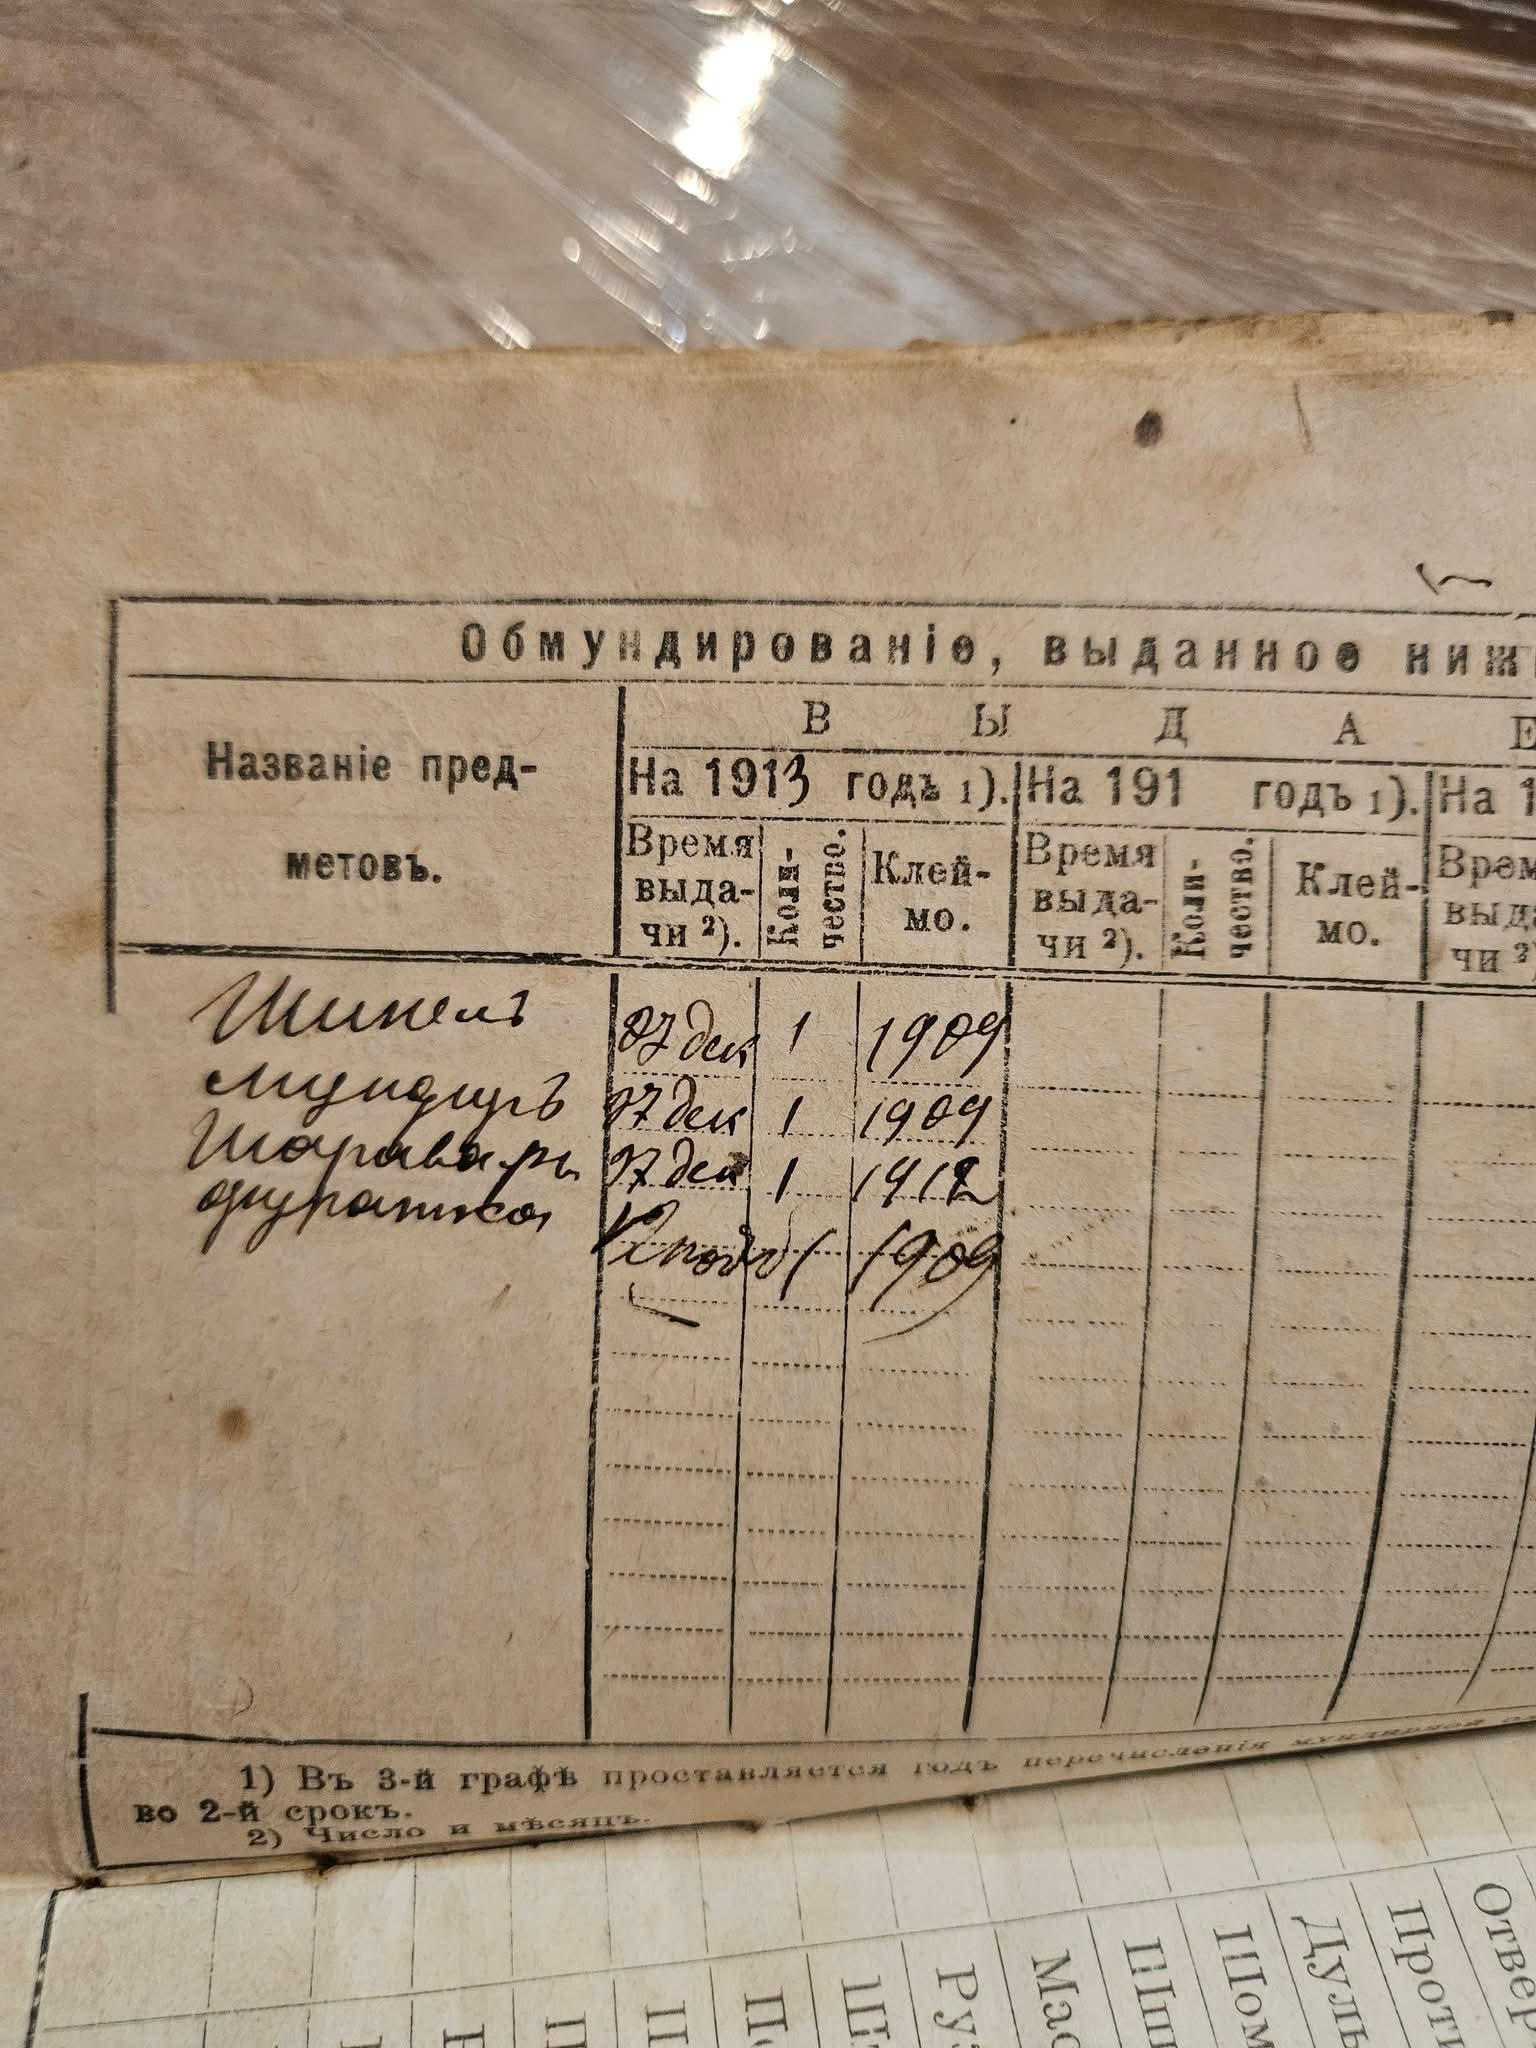 Обмундированіе, выданное ниж
В Ы Д А Е
Названіе пред-
метовъ.
На 1913 годъ 1). На 191 годъ 1). На 1
Время выда-чи 2). Коли-чество. Клей-мо. Время выда-чи 2). Коли-чество. Клей-мо. Врем выда чи 2)
Шинель 27 дек 1 1909
мундиръ 27 дек 1 1909
Шаравары 27 дек 1 1912
фуражка 1 1909
1) Въ 3-й графѣ проставляется годъ перечисленія мундирной
во 2-й срокъ.
2) Число и мѣсяцъ.
Ру
Мас
Шом
Дуль
Проти
Отвер